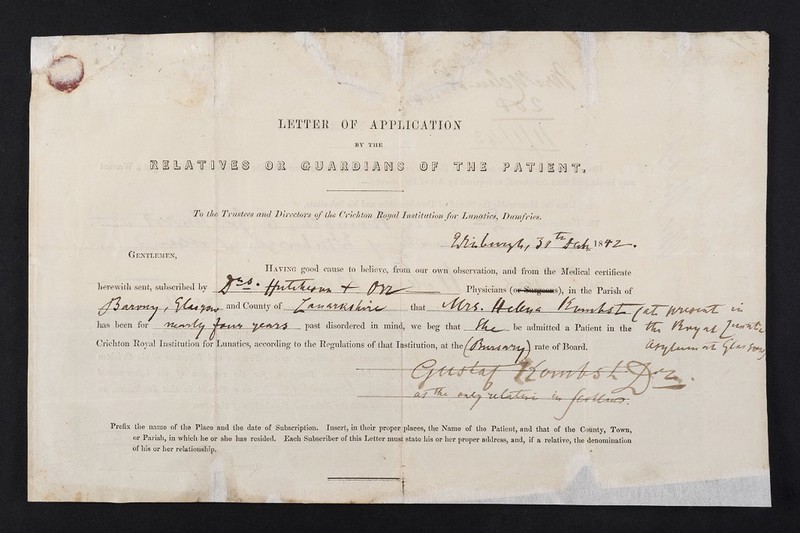 LETTER OF APPLICATION
BY THE
RELATIVES OR GUARDIANS OF THE PATIENT.
To the Trustees and Directors of the Crichton Royal Institution for Lunatics, Dumfries.
Edinburgh, 31th 1842.
GENTLEMEN,
HAVING good cause to believe, from our own observation, and from the Medical certificate
herewith sent, subscribed by Drs. Hutcheson + Orr Physicians (or Surgeons), in the Parish of
Barony, Glasgow and County of Lanarkshire that Mrs. Helena Kombst (at present in
has been for nearly four years past disordered in mind, we beg that She be admitted a Patient in the the Royal Lunatic
Crichton Royal Institution for Lunatics, according to the Regulations of that Institution, at the (Bursary) rate of Board. Asylum at Glasgow)
Gustaf Kombst Dr.
as the only relative in Scotland.
Prefix the name of the Place and the date of Subscription. Insert, in their proper places, the Name of the Patient, and that of the County, Town,
or Parish, in which he or she has resided. Each Subscriber of this Letter must state his or her proper address, and, if a relative, the denomination
of his or her relationship.